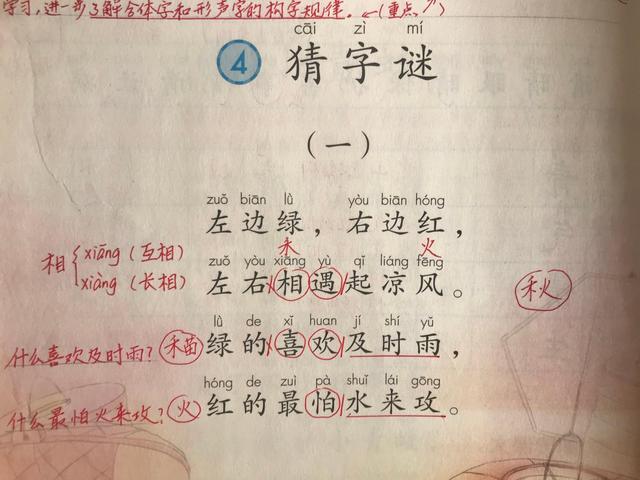 学习,进一步了解合体字和形声字的构字规律。←(重点)
cāi zì mí
4 猜字谜
(一)
zuǒ biān lǜ yòu biān hóng
左边绿,右边红,
禾 火
相 xiāng (互相)
xiàng (长相)
zuǒ yòu xiāng yù qǐ liáng fēng
左右相遇起凉风。
秋
lǜ de xǐ huan jí shí yǔ
什么喜欢及时雨? 禾苗 绿的喜欢及时雨,
hóng de zuì pà shuǐ lái gōng
什么最怕火来攻? 火 红的最怕水来攻。